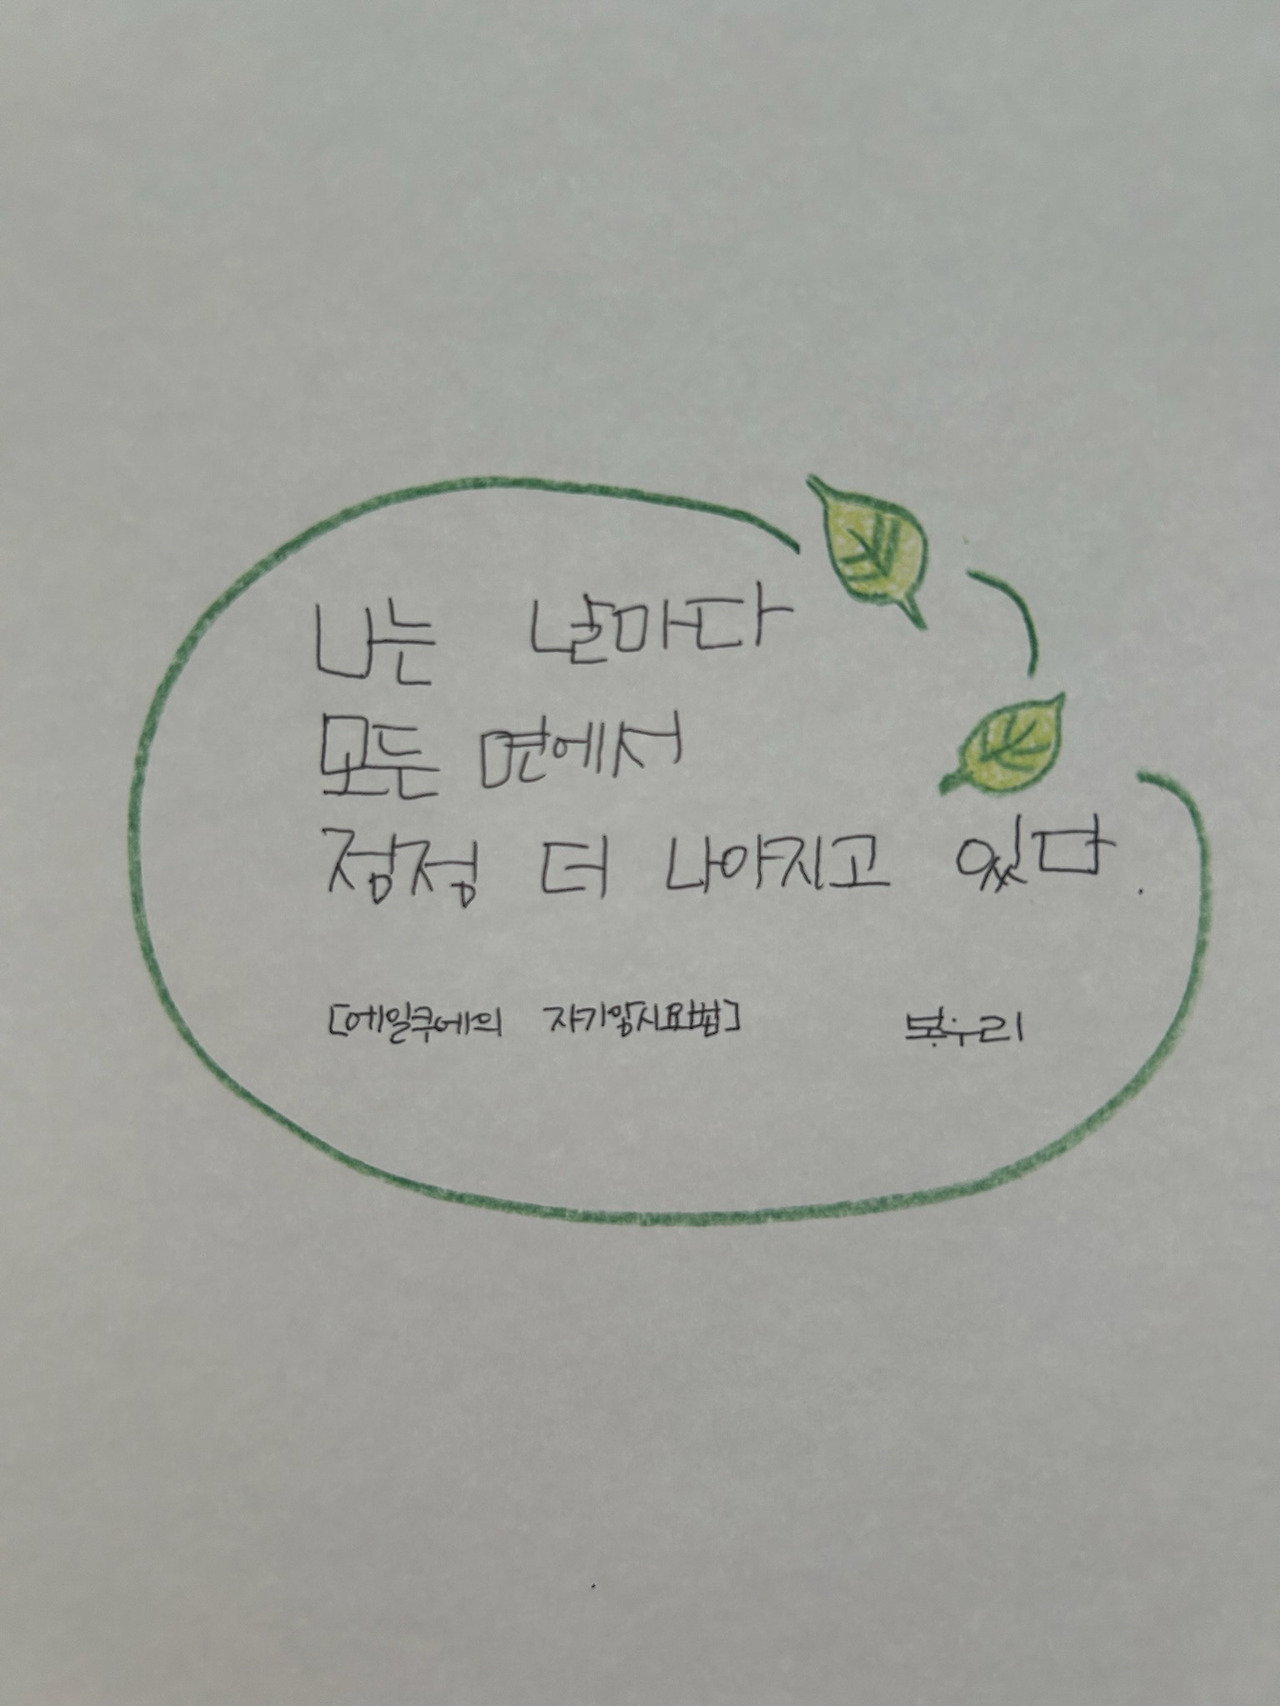 나는 날마다
모든 면에서
점점 더 나아지고 있다.
[에밀쿠에의 자기암시요법]